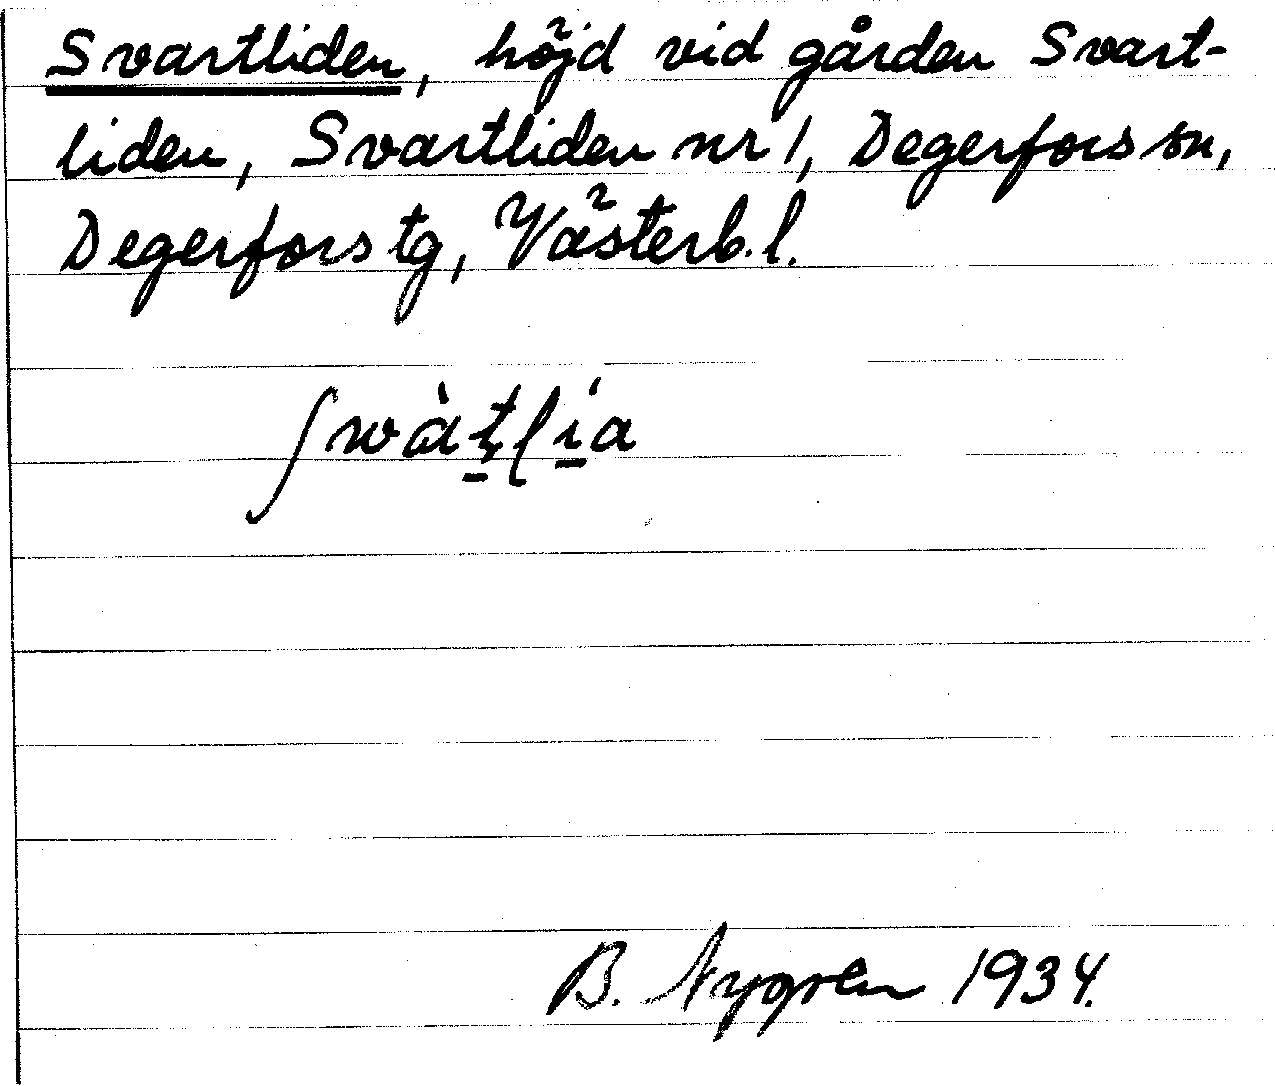 Svartliden, höjd vid gården Svart-
liden, Svartliden nr 1, Degerfors sn,
Degerfors tg, Västerb. l.
ʃwàt̠lí̠a
B. Nygren 1934.